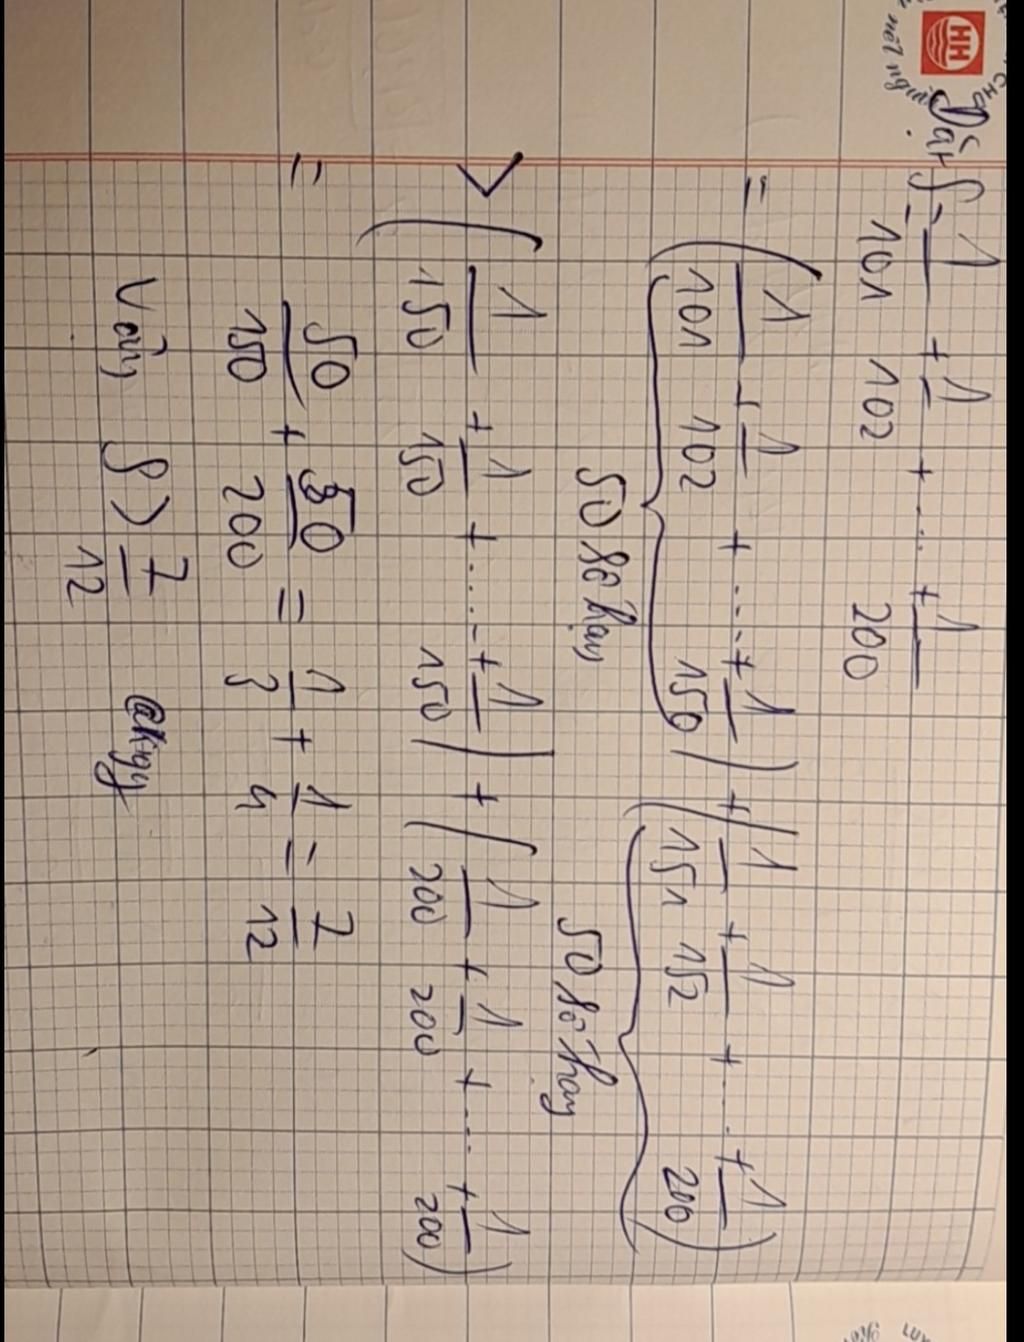 Đặt S = 1/101 + 1/102 + .... + 1/200
= (1/101 + 1/102 + .... + 1/150) + (1/151 + 1/152 + .... + 1/200)
50 số hạng 50 số hạng
> (1/150 + 1/150 + ..... + 1/150) + (1/200 + 1/200 + .... + 1/200)
= 50/150 + 50/200 = 1/3 + 1/4 = 7/12
Vậy S > 7/12
HH